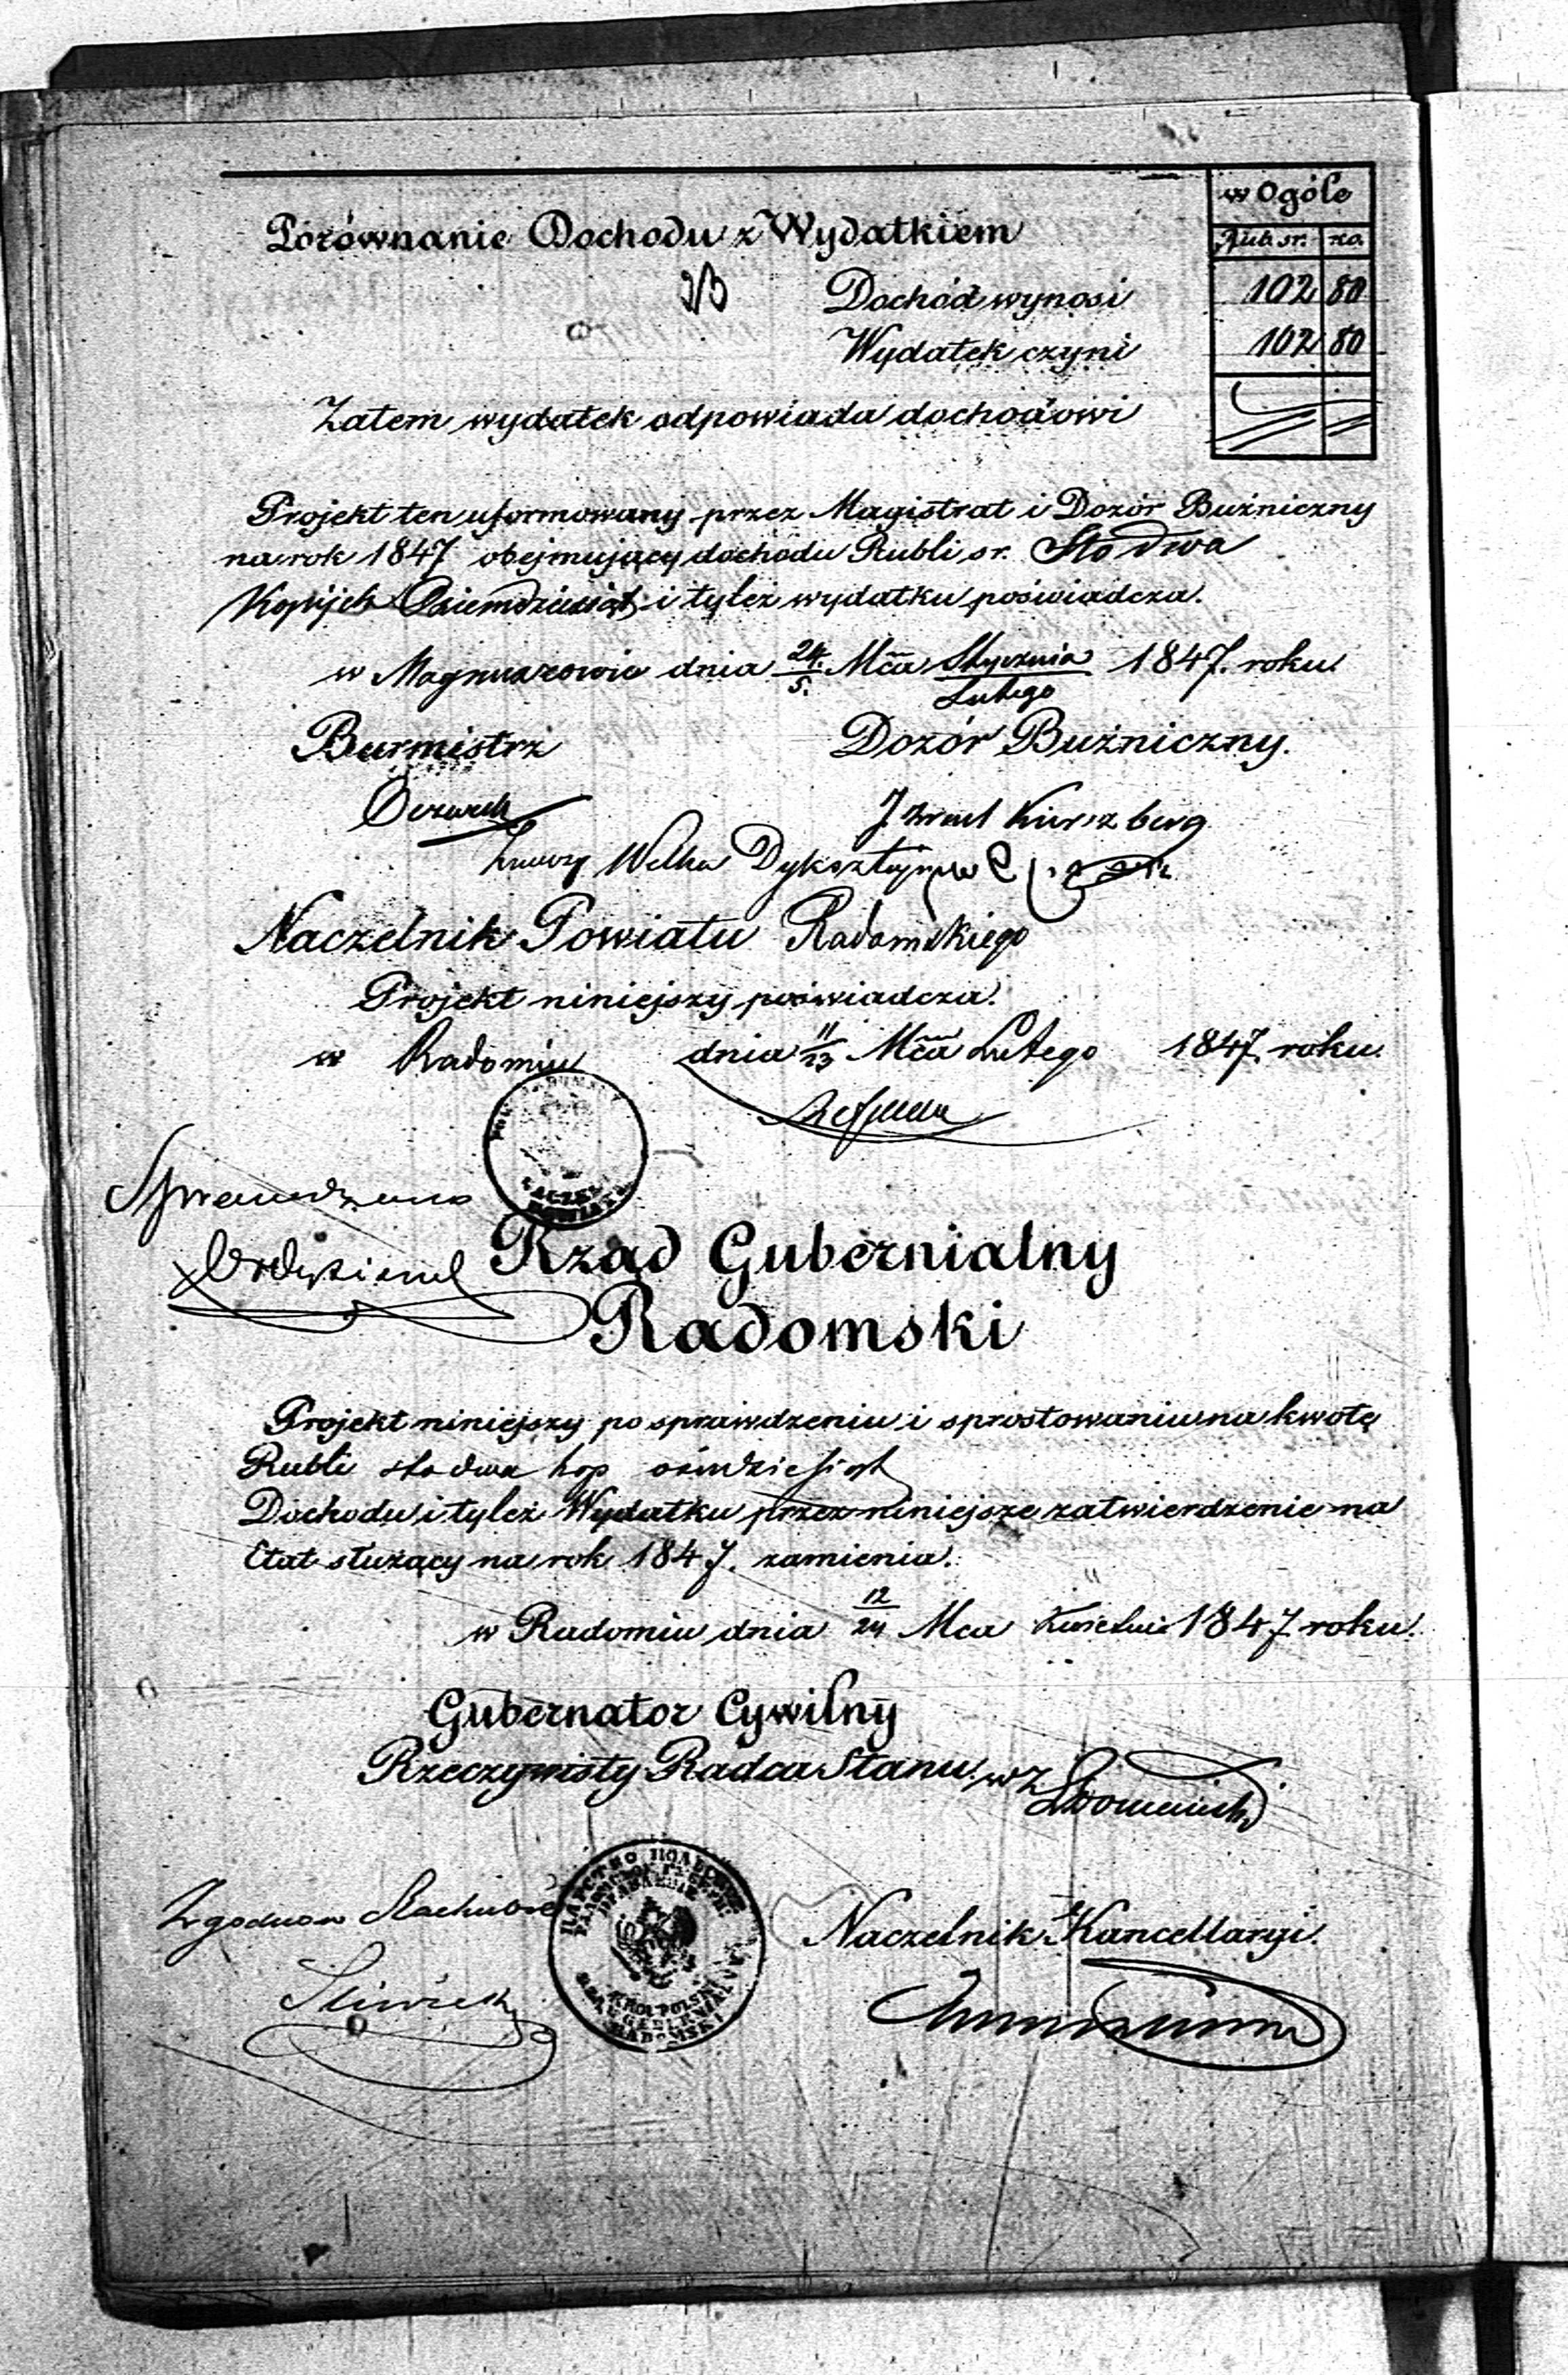 w Ogóle
Porównanie Dochodu z Wydatkiem
Rub. sr. | ko.
Dochód wynosi 102 80
Wydatek czyni 102 80
Zatem wydatek odpowiada dochodowi
Projekt ten uformowany przez Magistrat i Dozór Buźniczny
na rok 1847 obejmujący dochodu Rubli sr. Sto dwa
Kopijek Ośiemdziesiąt i tyleż wydatku poświadcza.
w Magnuszewie dnia 24/5. Mca Stycznia/Lutego 1847. roku
Burmistrz Dozór Buźniczny.
Izrael Kirszberg
Welka Dyksztejn
Naczelnik Powiatu Radomskiego
Projekt niniejszy poświadcza.
w Radomiu dnia 11/23 Mca Lutego 1847 roku.
Sprawdzono
Rząd Gubernialny
Radomski
Projekt niniejszy po sprawdzeniu i sprostowaniu na kwotę
Rubli sto dwa kop ośmdziesiąt
Dochodu i tyleż Wydatku przez niniejsze zatwierdzenie na
Etat służący na rok 1847. zamienia.
w Radomiu dnia 12/24 Mca Kwietnia 1847 roku.
Gubernator Cywilny
Rzeczywisty Radca Stanu. w z
Zgodno w Rachubie
Naczelnik Kancellaryi.
KROL. POLSKI
RADOMSKI